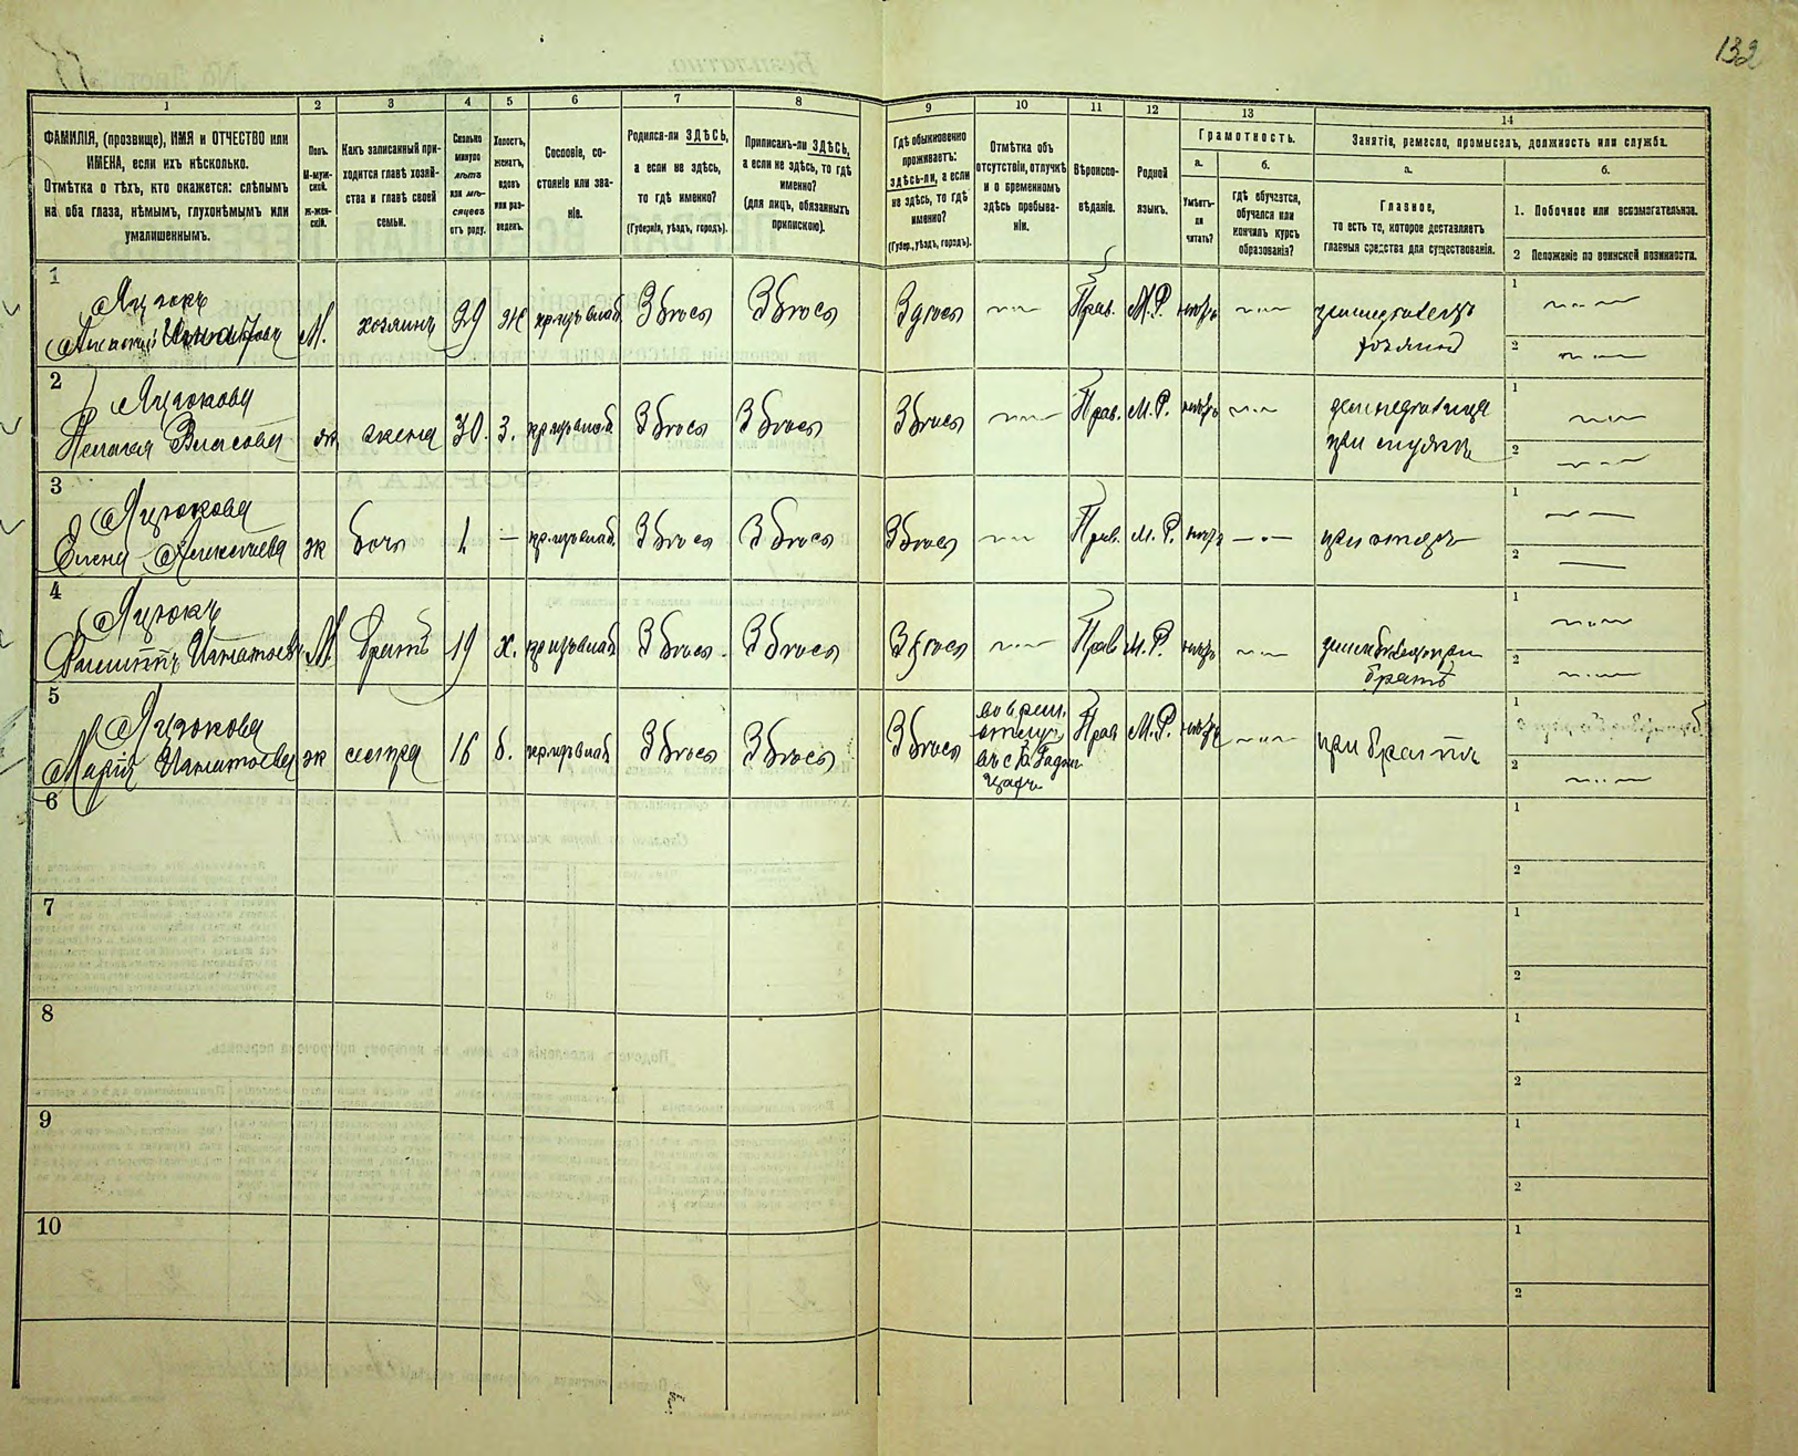 132
1
2
3
4
5
6
7
8
9
10
11
12
13
14
ФАМИЛІЯ, (прозвище), ИМЯ и ОТЧЕСТВО или
ИМЕНА, если ихъ нѣсколько.
Отмѣтка о тѣхъ, кто окажется: слѣпымъ
на оба глаза, нѣмымъ, глухонѣмымъ или
умалишеннымъ.
Полъ.
М-муж-
ской.
Ж-жен-
скій.
Какъ записанный при-
ходится главѣ хозяй-
ства и главѣ своей
семьи.
Сколько
минуло
лѣтъ
или мѣ-
сяцевъ
отъ роду.
Холостъ,
женатъ,
вдовъ
или раз-
веденъ.
Сословіе, со-
стояніе или зва-
ніе.
Родился-ли ЗДѢСЬ,
а если не здѣсь,
то гдѣ именно?
(Губернія, уѣздъ, городъ).
Приписанъ-ли ЗДѢСЬ,
а если не здѣсь, то гдѣ
именно?
(для лицъ, обязанныхъ
припискою).
Гдѣ обыкновенно
проживаетъ:
здѣсь-ли, а если
не здѣсь, то гдѣ
именно?
(Губер., уѣздъ, городъ).
Отмѣтка объ
отсутствіи, отлучкѣ
и о временномъ
здѣсь пребыва-
ніи.
Вѣроиспо-
вѣданіе.
Родной
языкъ.
Грамотность.
а.
Умѣетъ-
ли
читать?
б.
Гдѣ обучается,
обучался или
кончилъ курсъ
образованія?
Занятіе, ремесло, промыселъ, должность или служба.
а.
Главное,
то есть то, которое доставляетъ
главныя средства для существованія.
б.
1. Побочное или вспомогательное.
2 Положеніе по воинской повинности.
1
Яцюкъ
Алексѣй
М.
хозяинъ
29
Ж
кр.изъ влад.
Здѣсь
Здѣсь
Здѣсь
Прав.
М.Р.
нѣтъ
земледѣлецъ
хозяинъ
1
2
2
Яцюкова
Пелагея Власова
ж
жена
30.
З.
кр.изъ влад.
Здѣсь
Здѣсь
Здѣсь
Прав.
М.Р.
нѣтъ
земледѣлица
при мужѣ
1
2
3
Яцюкова
Елена Алексѣева
ж
дочь
1
—
кр.изъ влад.
Здѣсь
Здѣсь
Здѣсь
Прав.
М.Р.
нѣтъ
при отцѣ
1
2
4
Яцюкъ
Филиппъ Игнатьевъ
М.
братъ
19
Х.
кр.изъ влад.
Здѣсь
Здѣсь
Здѣсь
Прав
М.Р.
нѣтъ
братѣ
1
2
5
Яцюкова
Марія Игнатьева
ж
сестра
16
д.
кр.изъ влад.
Здѣсь
Здѣсь
Здѣсь
Прав
М.Р.
нѣтъ
при братѣ
1
2
6
1
2
7
1
2
8
1
2
9
1
2
10
1
2